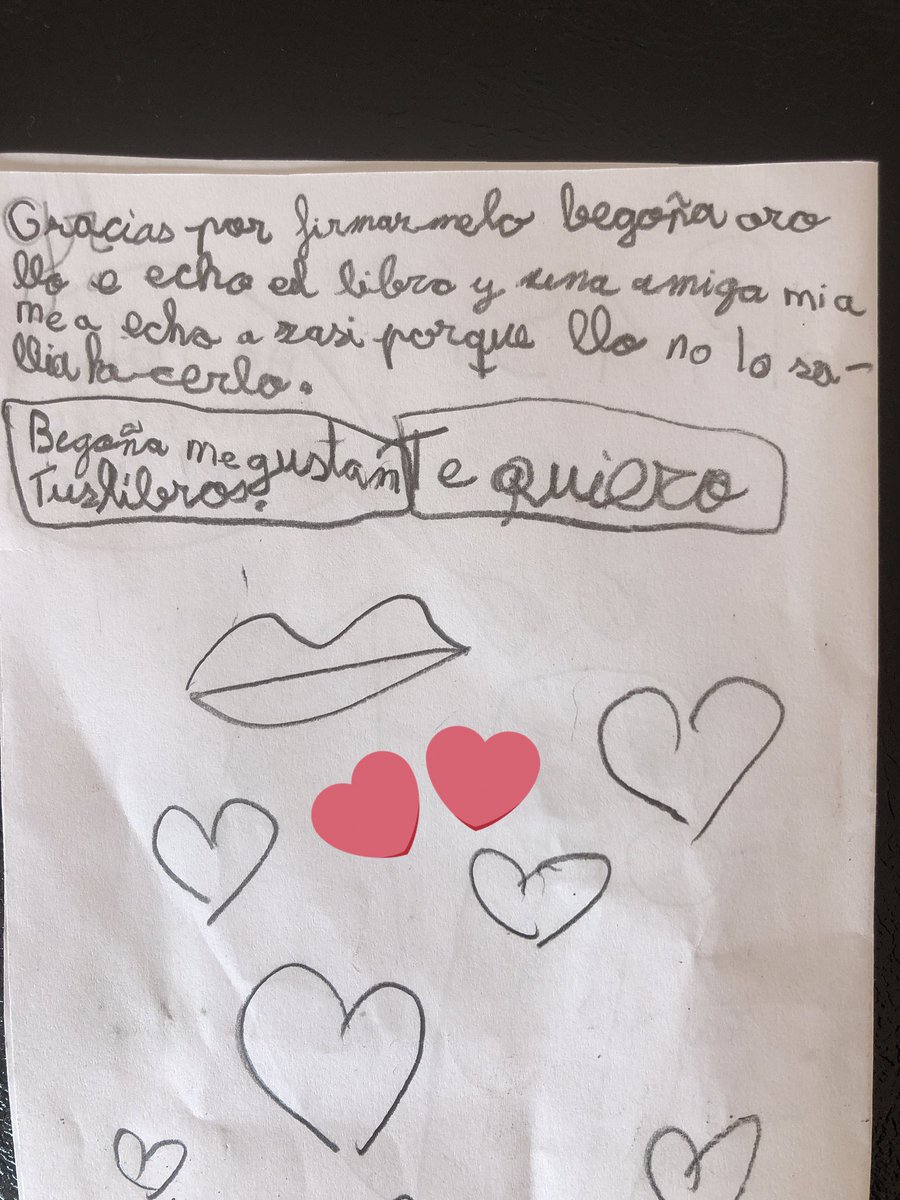 Gracias por firmarmelo begoña oro
llo e echo el libro y una amiga mia
me a echo a rasi porque llo no lo sa-
llia ha-cerlo.
Begoña me gustan
Tus libros.
Te quiero